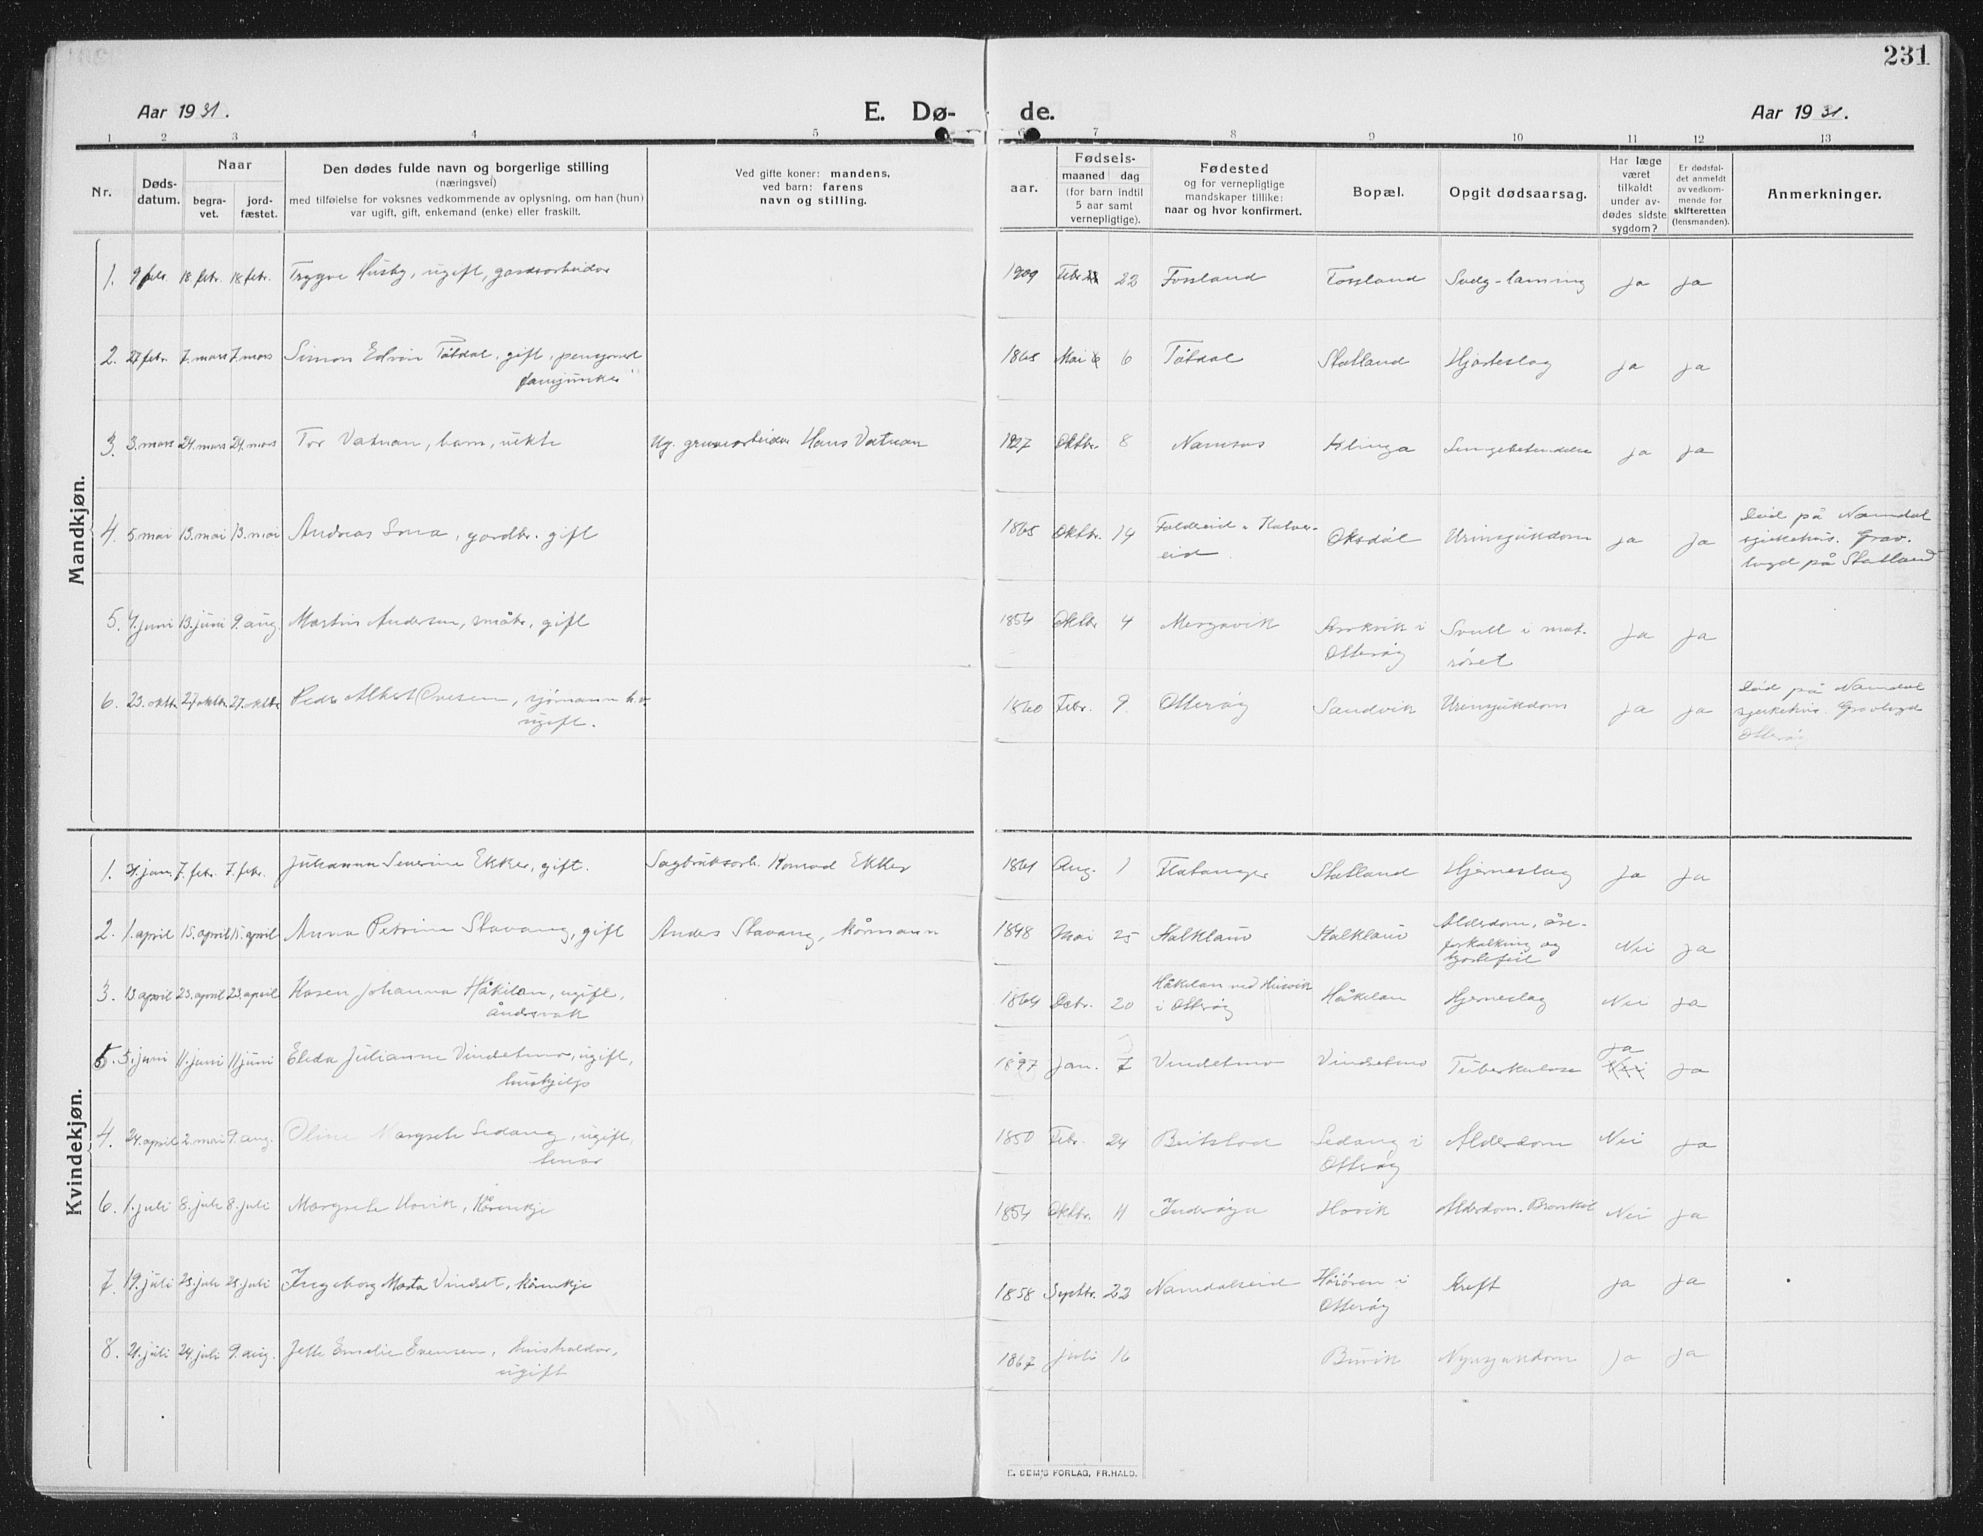 231
Aar 1931.
E. Dø-
de.
Aar 1931.
1 2 3 4 5 6 7 8 9 10 11 12 13
Nr.
Døds-
datum.
Naar
begra-
vet.
jord-
fæstet.
Den dødes fulde navn og borgerlige stilling
(næringsvei)
med tilføielse for voksnes vedkommende av oplysning, om han (hun)
var ugift, gift, enkemand (enke) eller fraskilt.
Ved gifte koner: mandens,
ved barn: farens
navn og stilling.
Fødsels-
aar.
maaned dag
(for barn indtil
5 aar samt
vernepligtige).
Fødested
og for vernepligtige
mandskaper tillike:
naar og hvor konfirmert.
Bopæl.
Opgit dødsaarsag.
Har læge
været
tilkaldt
under av-
dødes sidste
sygdom?
Er dødsfal-
det anmeldt
av vedkom-
mende for
skifteretten
(lensmanden).
Anmerkninger.
Mandkjøn.
1. 9 febr. 18 febr. 18 febr. Trygve Husby, ugift, gardsarbeider 1909 Febr. 22 Fossland Fossland ja ja
2. 27 febr. 7. mars 7. mars Simon Edvin Tøtdal, gift, pensjonert
fanejunker 1865 Mai 6 Tøtdal Statland Hjarteslag ja ja
3. 3. mars 24. mars 24. mars Tor Vatnan, barn, uekte Ug. gruvearbeider Hans Vatnan 1927 Oktbr. 8 Namsos Klinga Lungebetendelse ja ja
4. 5. mai 13. mai 13. mai Andreas Sona, gardbr. gift 1865 Oktbr. 14
eid Oksdøl Urinsjukdom ja ja Død på Namdal
sjukehus. Grav-
lagd på Statland
5. 7. juni 13. juni 9. aug. Martin Andersen, småbr, gift 1854 Oktbr 4 i
Otterøy Svull i mat-
røret ja ja
6. 23. oktbr 27 oktbr. 27. oktbr. Peder Albert Ovesen, sjømann
ugift. 1860 Febr. 9. Otterøy Sandvik Urinsjukdom ja ja Død på Namdal
sjukehus. Gravlagd
Otterøy
Kvindekjøn.
1. 31. jan. 7. febr. 7. febr. Julianna Severine Ekker, gift. Sagbruksarb. Konrad Ekker 1861 Aug. 1 Flatanger Statland Hjerneslag ja ja
2. 1. april 15. april 15. april Anna Petrine Stavang, gift Anders Stavang, kårmann 1848 Mai 25 Halkland Halkland Alderdom, åre-
forkalkning og
hjartefeil Nei ja
3. 13 april 23. april 23. april Karen Johanna Håkilan, ugift,
åndsvak 1864 Octr. 20 Håkilan ved Husvik
i Otterøy Håkilan Hjerneslag Nei ja
5. 5. juni 11. juni 11 juni Eleda Julianne Vindetmo, ugift,
hushjelp 1897 Jan. 7 Vindetmo Vindsetmo Tuberkulose ja
Nei ja
4. 24. april 2. mai 9. aug. Oline Margrete Sedang, ugift, 1850 Febr. 24 Beitstad Sedang i
Otterøy Alderdom Nei ja
6. 1. juli 8. juli 8. juli Margrete Hovik, kårenkje 1854 Oktbr. 11 Inderøya Hovik Alderdom. Bronkit Nei ja
7. 19. juli 25. juli 25. juli Ingeborg Marta Vindset, kårenkje 1858 Septbr. 22 Namdalseid i
Otterøy Kreft ja ja
8. 21. juli 24. juli 9. aug. Jette Emelie Evensen, husholder,
ugift 1867 juli 16 Buvik Nyrsjukdom ja ja
E. SEM'S FORLAG, FR.HALD.